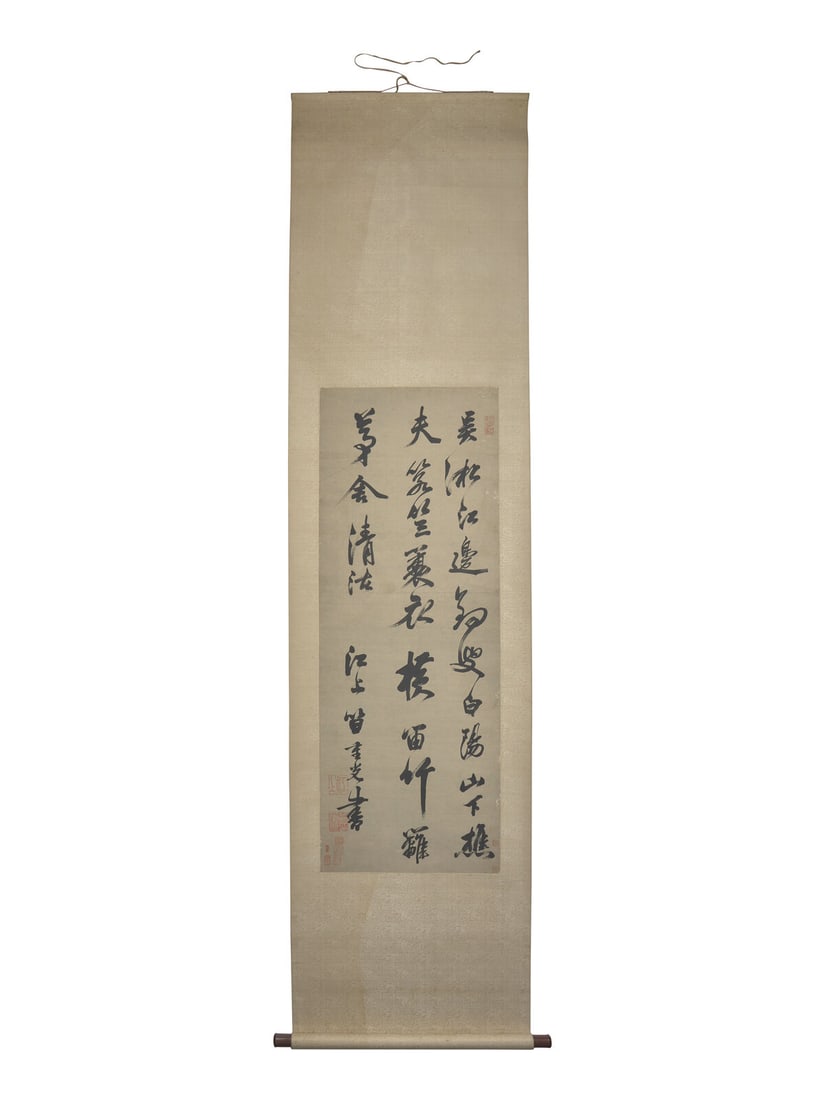 吳淞江邊釣叟白陽山下樵
夫箬笠簑衣橫笛竹籬
茅舍清沽 江上笪重光書